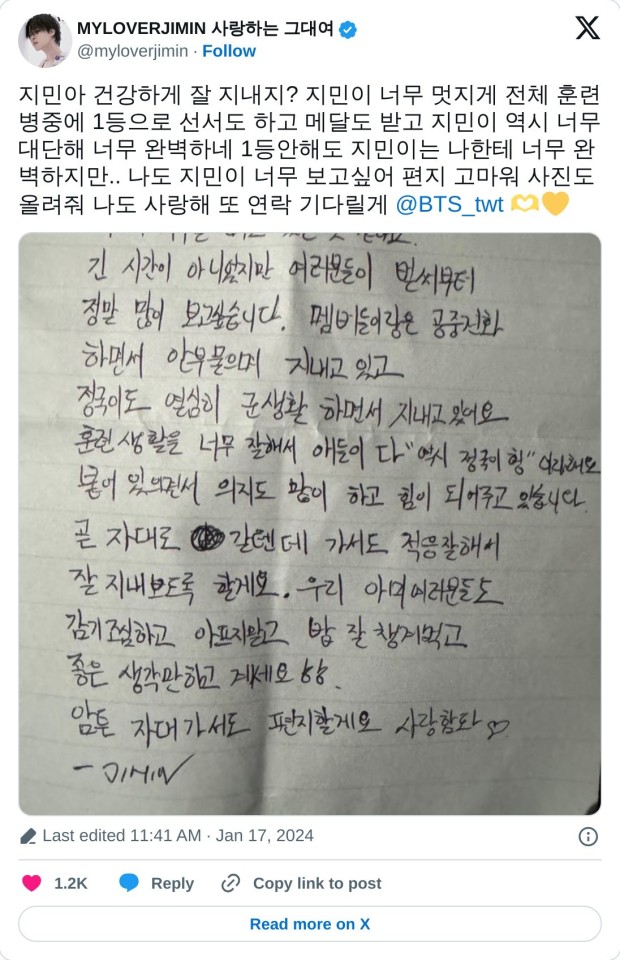 MYLOVERJIMIN 사랑하는 그대여
@myloverjimin · Follow
X
지민아 건강하게 잘 지내지? 지민이 너무 멋지게 전체 훈련
병중에 1등으로 선서도 하고 메달도 받고 지민이 역시 너무
대단해 너무 완벽하네 1등안해도 지민이는 나한테 너무 완
벽하지만.. 나도 지민이 너무 보고싶어 편지 고마워 사진도
올려줘 나도 사랑해 또 연락 기다릴게 @BTS_twt 🫶💛
긴 시간이 아니였지만 여러분들이 벌써부터
정말 많이 보고싶습니다. 멤버들이랑은 공중전화
하면서 안부물으며 지내고 있고
정국이도 열심히 군생활 하면서 지내고 있어요
훈련생활을 너무 잘해서 애들이 다 "역시 정국이 형" 이라해요
붙어 있으면서 의지도 많이 하고 힘이 되어주고 있습니다.
곧 자대로 갈텐데 가서도 적응잘해서
잘 지내보도록 할게요. 우리 아미여러분들도
감기조심하고 아프지말고 밥 잘 챙겨먹고
좋은 생각만하고 계세요
암튼 자대가서도 편지할게요 사랑함돠♡
- JIMIN
Last edited 11:41 AM · Jan 17, 2024
1.2K Reply Copy link to post
Read more on X